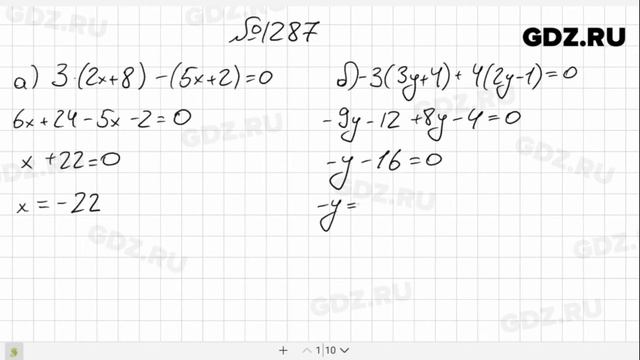 №1287
GDZ.RU
а) 3·(2x+8) -(5x+2)=0
6x+24-5x-2=0
x+22=0
x=-22
б)-3(3y+4)+4(2y-1)=0
-9y-12+8y-4=0
-y-16=0
-y=
GDZ.RU
GDZ.RU
GDZ.RU
GDZ.RU
GDZ.RU
GDZ.RU
1|10